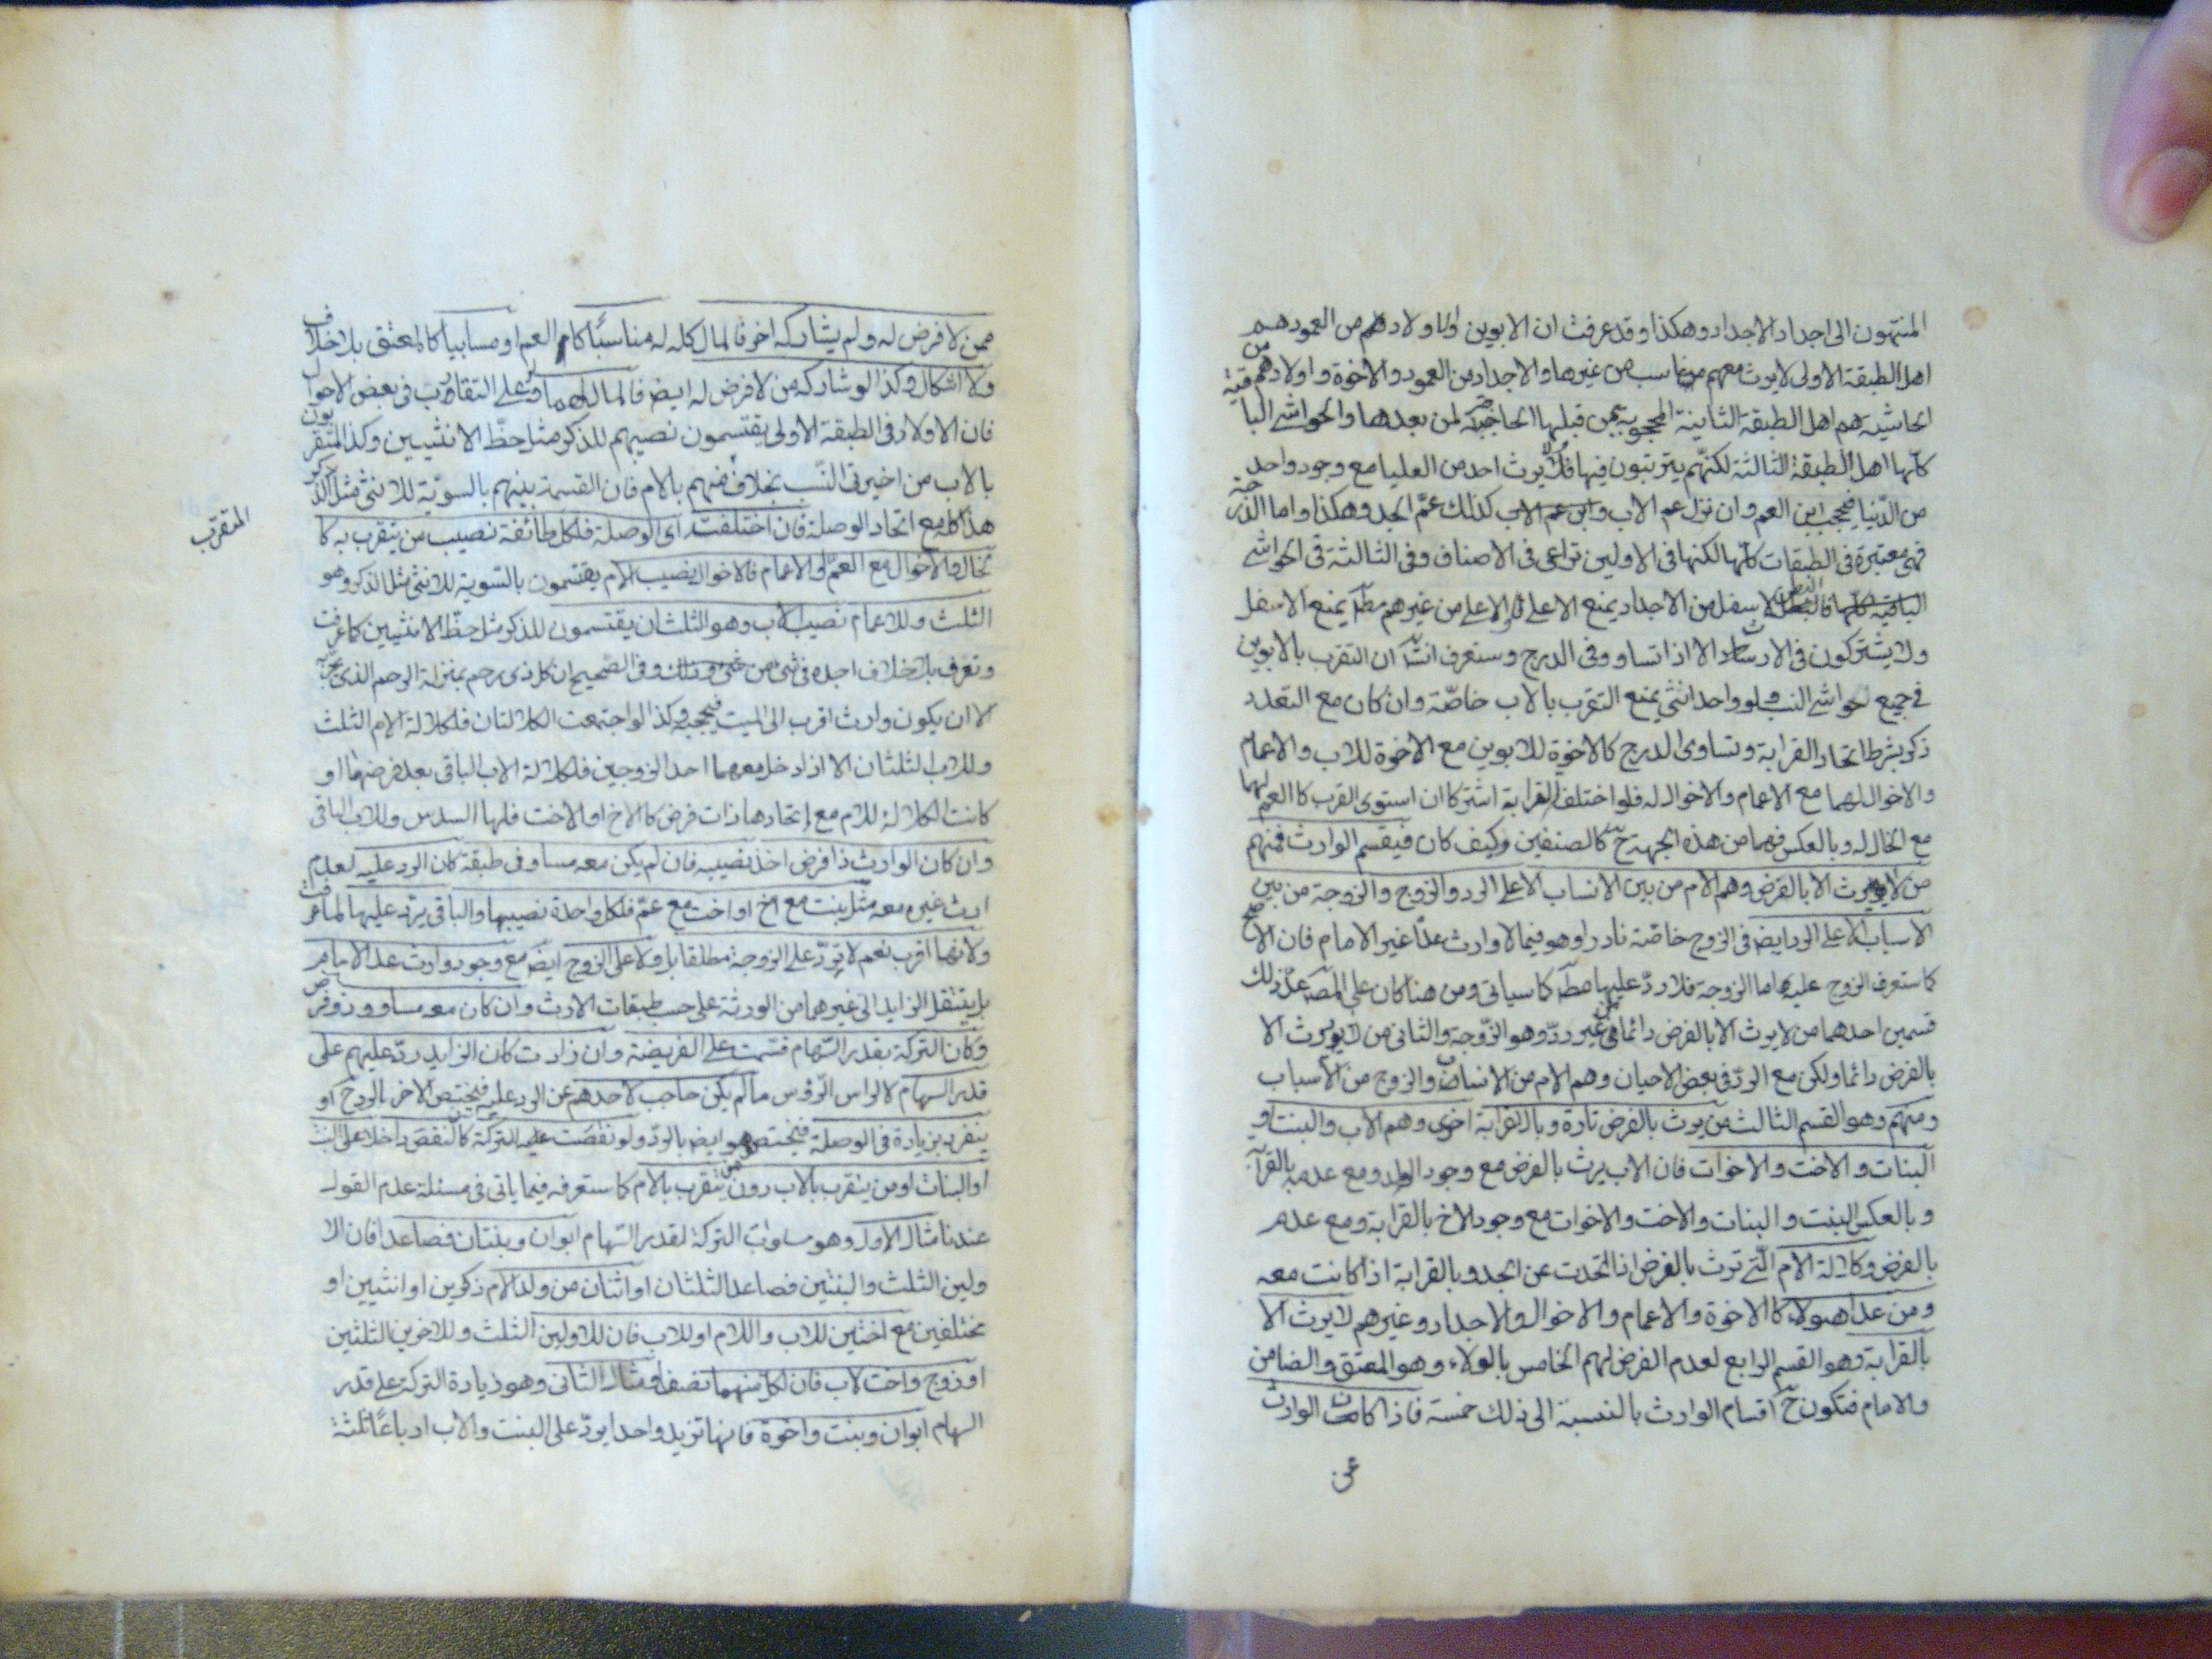 المنتهون الى اجداد الاجداد وهكذا وقد عرفت ان الابوين والاولاد من العمود هم
اهل الطبقة الاولى لا يرث معهم مناسب من غيرها والاجداد من العمود والاخوة واولادهم من
الحاشية هم اهل الطبقة الثانية المحجوبة بمن قبلها الحاجبة لمن بعدها والحواشي الباقية
كلها اهل الطبقة الثالثة لكنهم يترتبون فيها فلا يرث احد من العليا مع وجود واحد
من الدنيا فيحجب ابن العم وان نزل عم الاب وابن عم الاب كذلك عم الجد وهكذا واما الدرجة
فهي معتبرة في الطبقات كلها لكنها في الاولين تراعى في الاصناف وفي الثالثة في الحواشي
الباقية كلها فالبطن الاسفل من الاجداد يمنع الاعلى والاعلى من غيرهم مط يمنع الاسفل
ولا يشتركون في الارث الا اذا تساووا في الدرج وستعرف انش ان التقرب بالابوين
في جميع حواشي النسب ولو واحد انثى يمنع التقرب بالاب خاصّة وان كان مع التعدد
ذكر بشرط اتحاد القرابة وتساوى الدرج كالاخوة للابوين مع الاخوة للاب والاعمام
والاخوال لهما مع الاعمام والاخوال له فلو اختلف القرابة اشتركا ان استوى القرب كالعم لهما
مع الخال له وبالعكس فهما من هذه الجهة ح كالصنفين وكيف كان فيقسم الوارث فمنهم
من لا يرث الا بالفرض وهم الام من بين الانساب الا على الرد والزوج والزوجة من بين
الاسباب الا على الرد ايض في الزوج خاصّة نادرا وهو فيما لا وارث عدا غير الامام فان الاصح
كما ستعرف الزوج عليه واما الزوجة فلا ردّ عليها مط كما سياتى ومن هنا كان على المص عدّ ذلك
قسمين احدهما من لا يرث الا بالفرض دائما من غير ردّ وهو الزّوجة والثانى من لا يرث الا
بالفرض دائما ولكن مع الردّ في بعض الاحيان وهم الام من الانساب والزوج من الاسباب
ومنهم وهو القسم الثالث من يرث بالفرض تارة وبالقرابة اخرى وهم الاب والبنت و
البنات والاخت والاخوات فان الاب يرث بالفرض مع وجود الولد ومع عدمه بالقرابة
وبالعكس البنت والبنات والاخت والاخوات مع وجود الاخ بالقرابة ومع عدمه
بالفرض وكلالة الام الّتي ترث بالفرض اذا اتحدت عن الجد وبالقرابة اذا كانت معه
ومن عدا هولاء كالاخوة والاعمام والاخوال والاجداد وغيرهم لا يرث الا
بالقرابة وهو القسم الرابع لعدم الفرض لهم الخامس بالولاء وهو المعتق والضامن
والامام فتكون ح اقسام الوارث بالنسبة الى ذلك خمسة فاذا كان الوارث
ممن لا فرض له ولم يشاركه اخر فالمال كله له مناسبًا كام العم او مسابيا كالمعتق بلا خلاف
ولا اشكال وكذا لو شاركه من لا فرض له ايض فالمال لهما وعلى التقارب في بعض الاحوال
فان الاولاد في الطبقة الاولى يقتسمون نصيبهم للذكر مثل حظّ الانثيين وكذا المتقربون
بالاب من اخير في النّسب بخلاف منهم بالام فان القسمة بينهم بالسويّة للانثى مثل الذّكر
المتقرّب
هذا كله مع اتحاد الوصلة فان اختلفت اى الوصلة فلكل طائفة نصيب من يتقرب به كا
لخال والاخوال مع العم او الاعمام فالاخوال نصيب الام يقتسمون بالتسوية للانثى مثل الذكر وهو
الثلث وللاعمام نصيب الاب وهو الثلثان يقتسمون للذكر مثل حظّ الانثيين كما عرفت
وتعرف بلا خلاف اجده في شى من ذلك وفي الصّحيح ان كل ذى رحم بمنزلة الرحم الذى يجرّ به
الا ان يكون وارث اقرب الى الميت فيحجبه وكذا لو اجتمعت الكلالتان فلكلالة الام الثلث
وللاب الثلثان الا اذا دخل معهما احد الزوجين فلكلالة الاب الباقى بعد فرضهما او
كانت الكلالة للام مع اتحادها ذات فرض كالاخ او الاخت فلها السدس وللاب الباقى
وان كان الوارث ذا فرض اخذ نصيبه فان لم يكن معه مساو في طبقة كان الرد عليه لعدم
ارث غيره معه مثل بنت مع اخ او اخت مع عمّ فلكل واحدة نصيبها والباقى يردّ عليها لما عرفت
ولانهما اقرب نعم لا يردّ على الزوجة مطلقا بل ولا على الزوج ايض مع وجود وارث عدا الامام
بل ينتقل الزايد الى غيرهما من الورثة على حسب طبقات الارث وان كان معه مساو وذو فرض
وكان التركة بقدر السّهام قسّمت على الفريضة وان زادت كان الزايد ردّ عليهم على
قدر السهام لا لواس الرّؤس ما لم يكن حاجب لاحدهم عن الرد عليه فيختص الاخر بالرد ح او
ينفرد بزيادة في الوصلة فيختص هو ايض بالردّ ولو نقصت التركة كان النقص داخلا على البنت
او البنات او من يتقرب بالاب دون من يتقرب بالام كما ستعرفه فيما ياتى في مسئلة عدم القول
عندنا مثال الاول وهو مساواة التركة لقدر السّهام ابوان وبنتان فصاعدا فان الا
ولين الثلث والبنتين فصاعدا الثلثان او اثنان من ولد الام ذكرين او انثيين او
مختلفين مع اختين للاب واللام او للاب فان للاولين الثلث وللاخرين الثلثين
او زوج واخت لاب فان لكل منهما نصف ومثال الثانى وهو زيادة التركة على قدر
السهام ابوان وبنت واخوة فانها تزيد واحدا يردّ على البنت والاب ارباعًا ثلثة